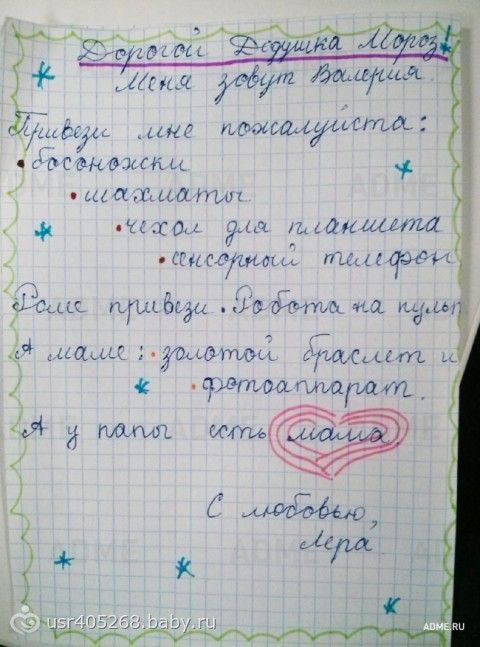 Дорогой Дедушка Мороз!
Меня зовут Валерия.
Привези мне пожалуйста:
• босоножки
• шахматы
• чехол для планшета
• сенсорный телефон
Роме привези • Робота на пульт
А маме: • золотой браслет и
• фотоаппарат.
А у папы есть мама.
С любовью,
Лера
ADME
ADME
ADME
usr405268.baby.ru
ADME.RU